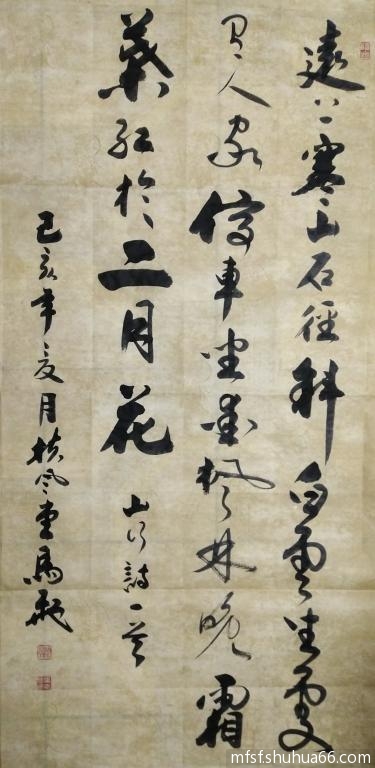 遠上寒山石徑斜白雲生處
有人家停車坐愛楓林晚霜
葉紅於二月花
山行詩一首
己亥年夏月風堂馬
mfsf.shuhua66.com